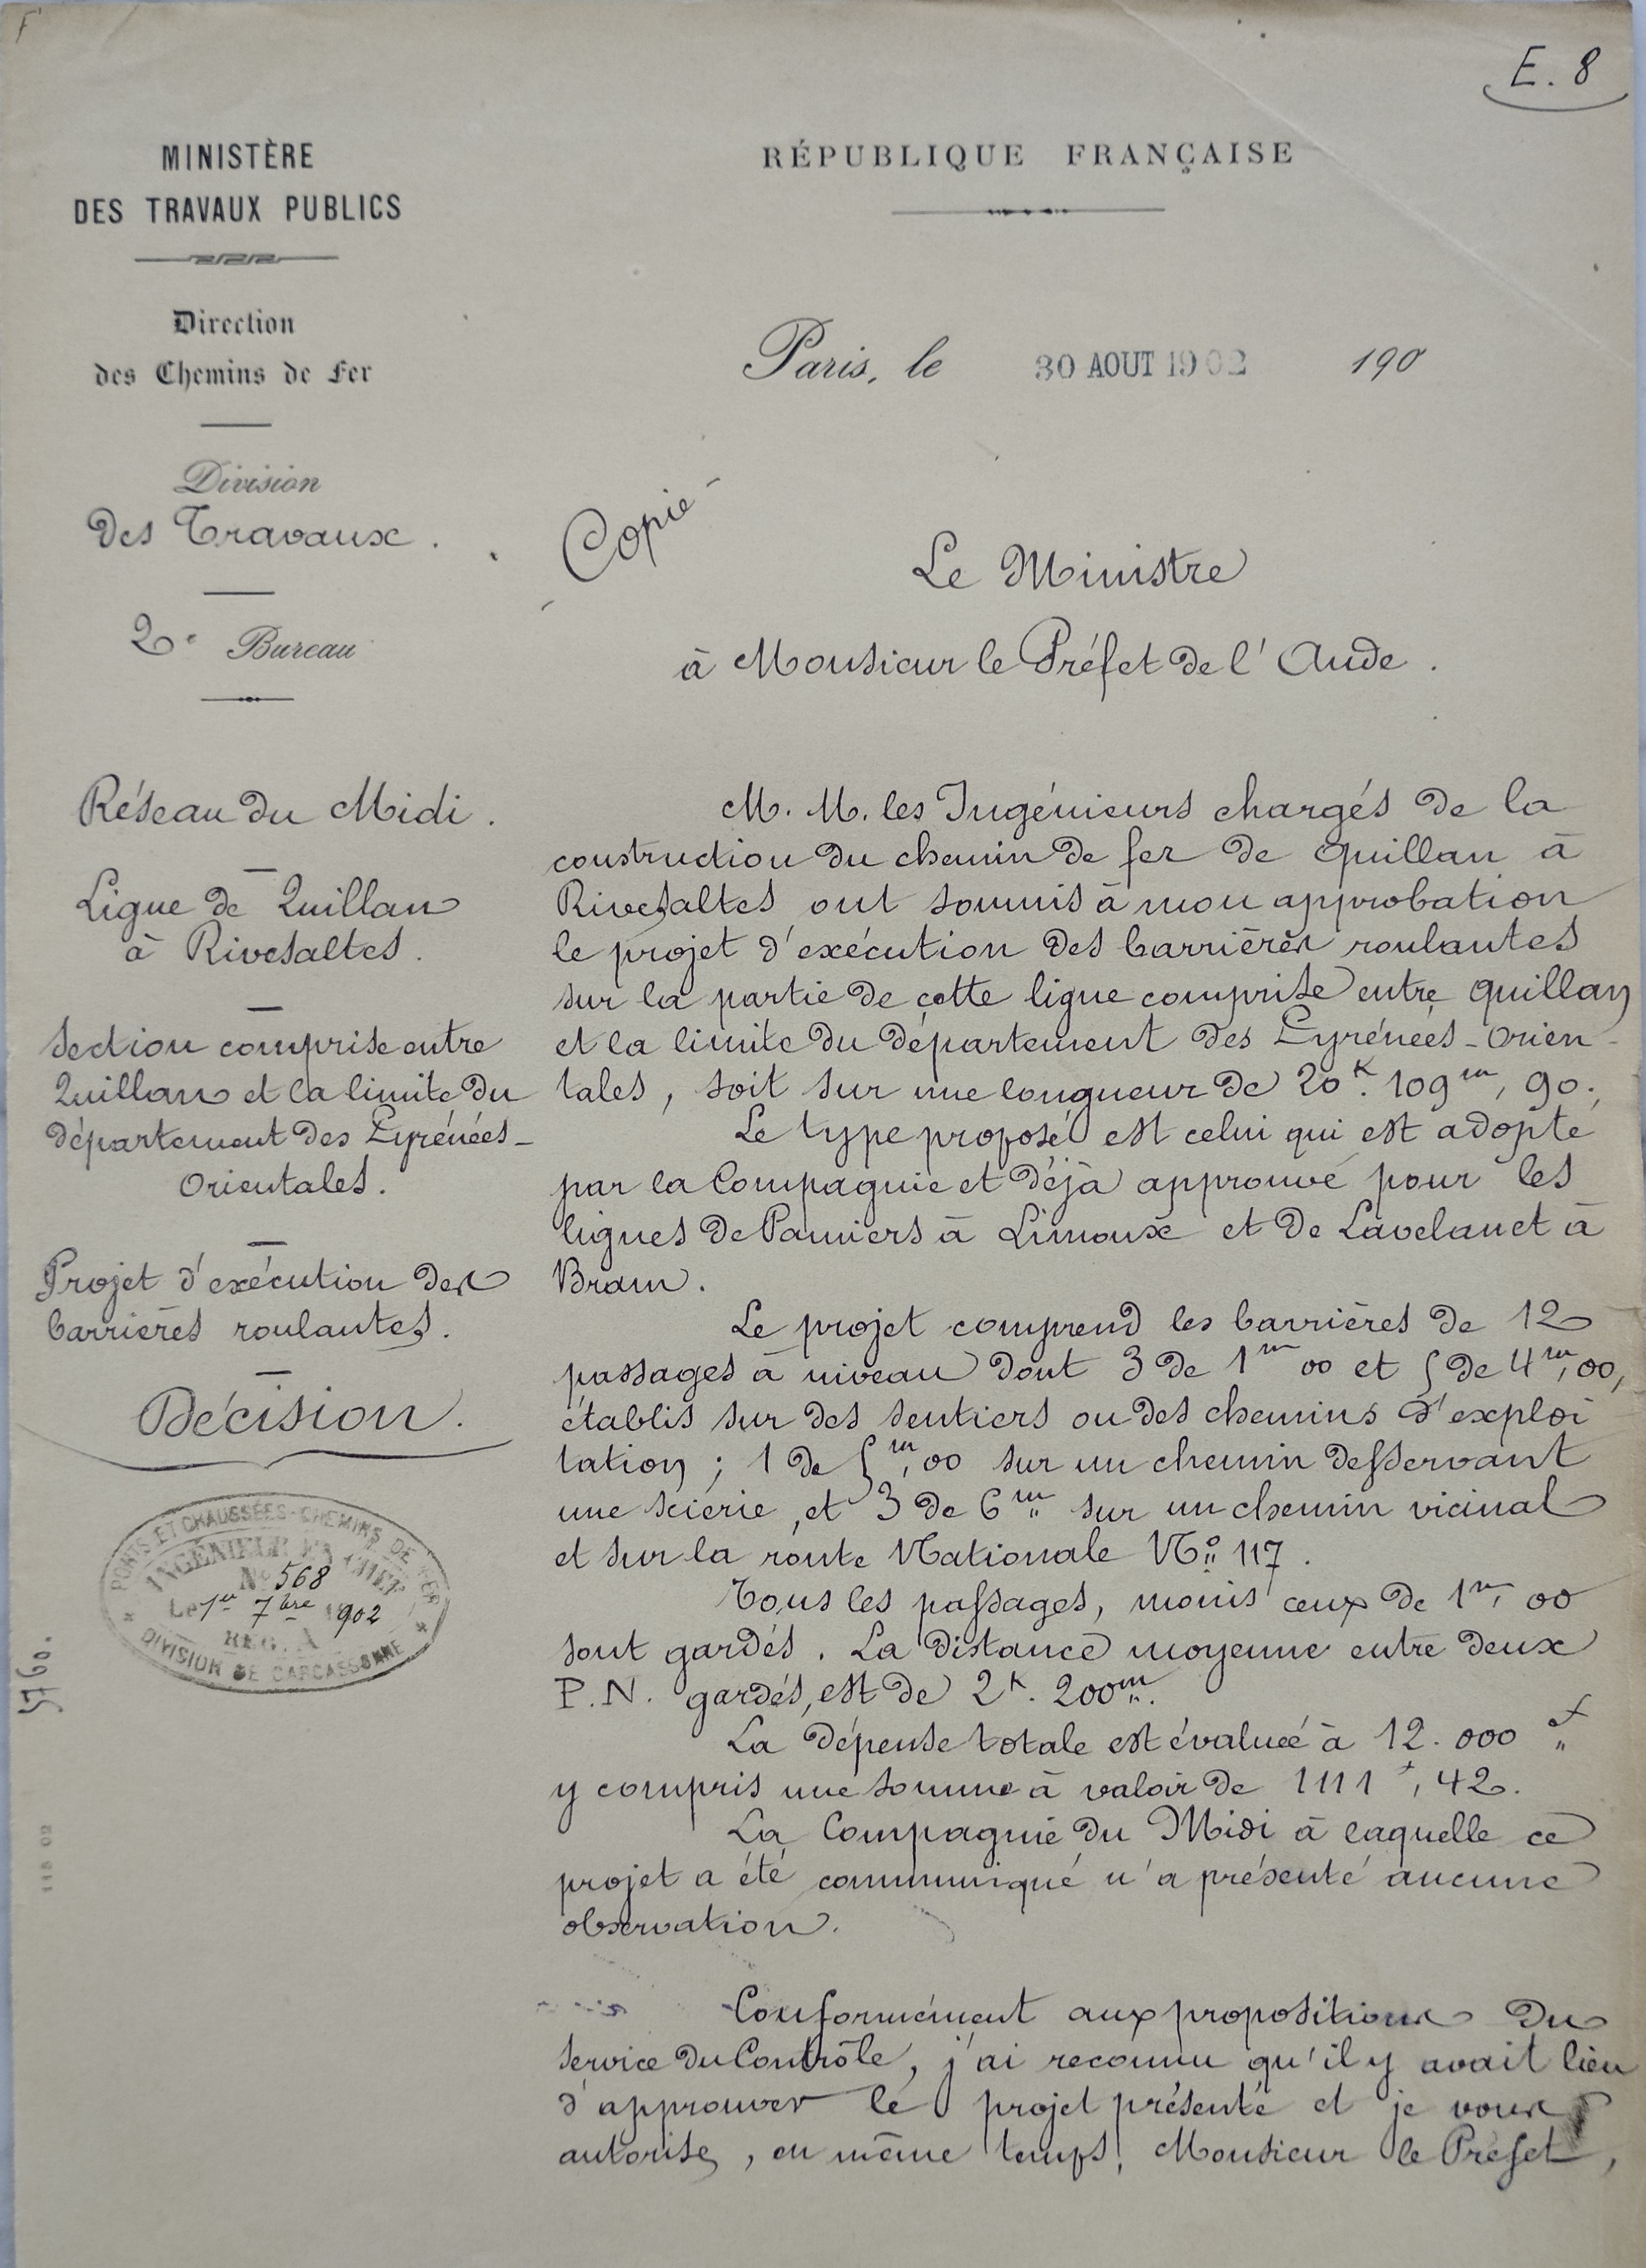 E. 8
MINISTÈRE
DES TRAVAUX PUBLICS
Direction
des Chemins de Fer
Division
des Travaux.
2e Bureau
Réseau du Midi.
Ligne de Quillan
à Rivesaltes.
Section comprise entre
Quillan et la limite du
département des Pyrénées-
Orientales.
Projet d'exécution des
barrières roulantes.
Décision.
PONTS ET CHAUSSÉES - CHEMINS DE FER
INGÉNIEUR EN CHEF
No 568
Le 1er 7bre 1902
REG. A
DIVISION DE CARCASSONNE
5760.
RÉPUBLIQUE FRANÇAISE
Paris, le 30 AOUT 1902 190
Copie
Le Ministre
à Monsieur le Préfet de l'Aude.
M. M. les Ingénieurs chargés de la
construction du chemin de fer de Quillan à
Rivesaltes ont soumis à mon approbation
le projet d'exécution des barrières roulantes
sur la partie de cette ligne comprise entre Quillan
et la limite du département des Pyrénées-Orien-
tales, soit sur une longueur de 20k. 109m, 90.
Le type proposé est celui qui est adopté
par la Compagnie et déjà approuvé pour les
lignes de Pamiers à Limoux et de Lavelanet à
Bram.
Le projet comprend les barrières de 12
passages à niveau dont 3 de 1m 00 et 5 de 4m,00,
établis sur des sentiers ou des chemins d'exploi
tation ; 1 de 5m,00 sur un chemin desservant
une scierie, et 3 de 6m sur un chemin vicinal
et sur la route Nationale No 117.
Tous les passages, moins ceux de 1m, 00
sont gardés. La distance moyenne entre deux
P.N. gardés, est de 2k. 200m.
La dépense totale est évaluée à 12.000 f
y compris une somme à valoir de 1111 f, 42.
La Compagnie du Midi à laquelle ce
projet a été communiqué n'a présenté aucune
observation.
Conformément aux propositions du
Service du Contrôle, j'ai reconnu qu'il y avait lieu
d'approuver le projet présenté et je vous
autorise, en même temps, Monsieur le Préfet,